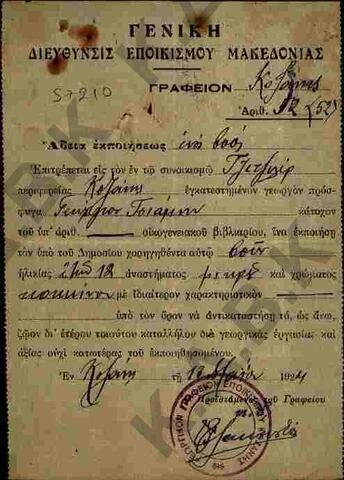 ΓΕΝΙΚΗ
ΔΙΕΥΘΥΝΣΙΣ ΕΠΟΙΚΙΣΜΟΥ ΜΑΚΕΔΟΝΙΑΣ
ΓΡΑΦΕΙΟΝ Κοζάνης
57210
Ἀριθ. 12
Ἄδεια ἐκποιήσεως ἑνός βοός
Ἐπιτρέπεται εἰς τὸν ἐν τῷ συνοικισμῷ
περιφερείας Κοζάνης ἐγκατεστημένον γεωργὸν πρόσ-
φυγα Γεώργιον κάτοχον
τοῦ ὑπ' ἀριθ. οἰκογενειακοῦ βιβλιαρίου, ἵνα ἐκποιήσῃ
τὸν ὑπὸ τοῦ Δημοσίου χορηγηθέντα αὐτῷ βοῦν
ἡλικίας ἐτῶν 12 ἀναστήματος μικροῦ καὶ χρώματος
κοκκίνου μὲ ἰδιαίτερον χαρακτηριστικὸν
ὑπὸ τὸν ὅρον νὰ ἀντικαταστήσῃ τό, ὡς ἄνω,
ζῶον δι' ἑτέρου τοιούτου καταλλήλου διὰ γεωργικὰς ἐργασίας καὶ
ἀξίας οὐχὶ κατωτέρας τοῦ ἐκποιηθησομένου.
Ἐν Κοζάνῃ τῇ 12 1924
Ὁ Προϊστάμενος τοῦ Γραφείου
ΓΕΩΡΓΙΚΟΝ ΓΡΑΦΕΙΟΝ ΕΠΟΙΚΙΣΜΟΥ ΚΟΖΑΝΗΣ